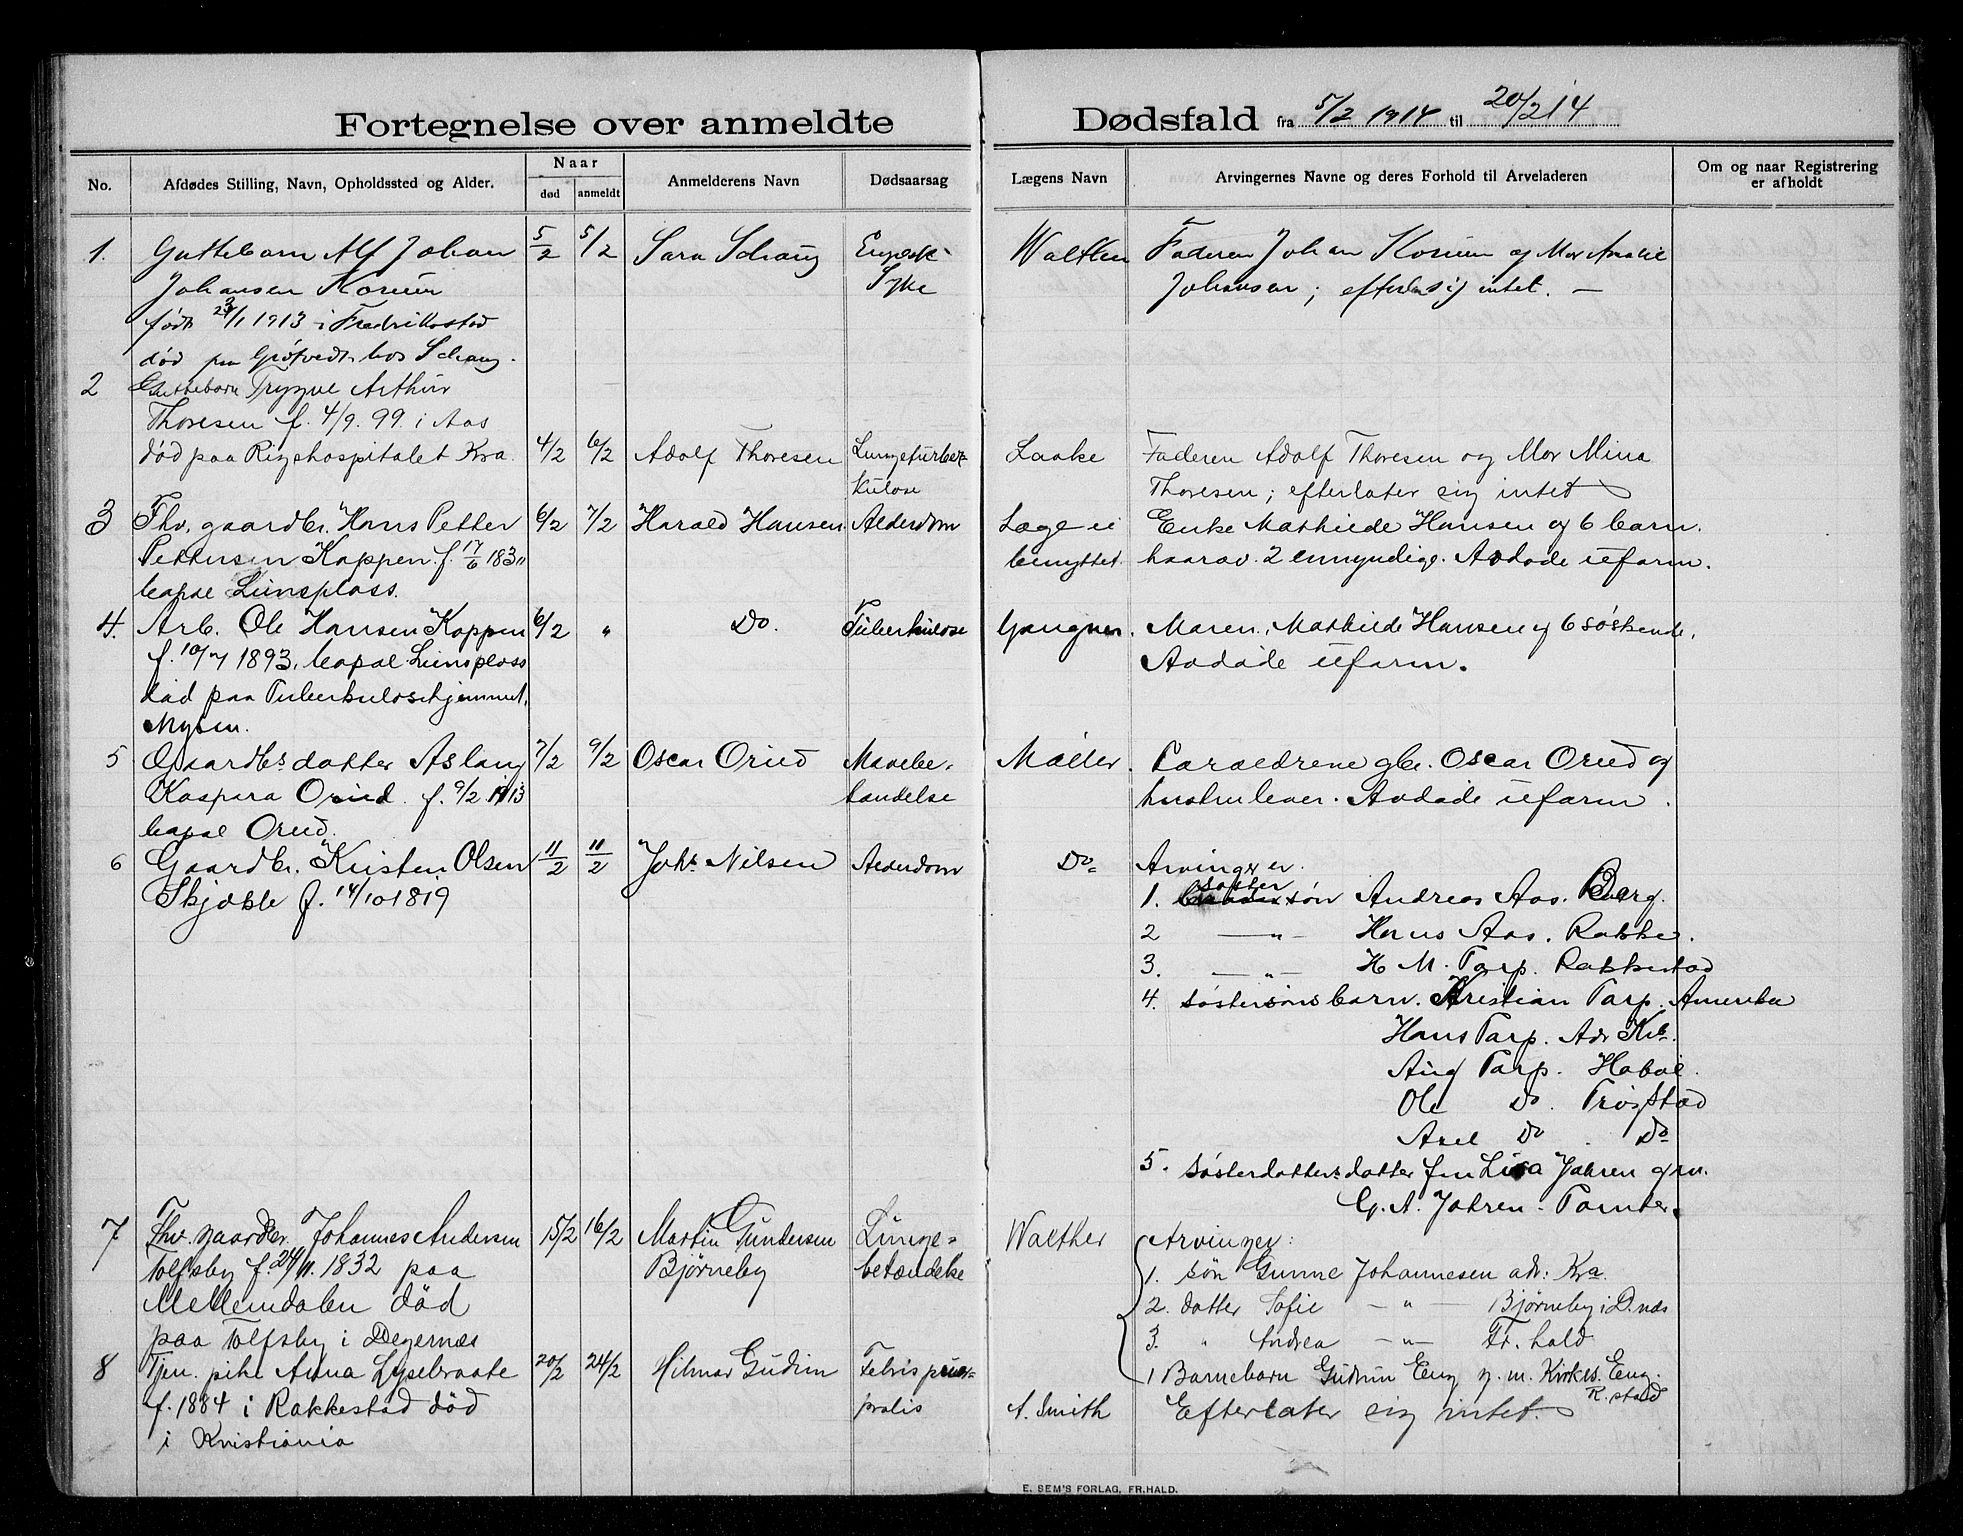 Fortegnelse over anmeldte Dødsfald fra 5/2 1914 til 20/2 14
No. Afdødes Stilling, Navn, Opholdssted og Alder. Naar død anmeldt Anmelderens Navn Dødsaarsag Lægens Navn Arvingernes Navne og deres Forhold til Arveladeren Om og naar Registrering er afholdt
1. Guttebarn Alf Johan 5/2 5/2 Sara Schaug Engelsk Walther Faderen Johan Korum og Mor Amalie
Johansen Korum Syke Johansen; efterl. sig intet. —
født 23/1 1913 i Fredrikstad
død paa hos Schaug.
2 Guttebarn Trygve Arthur
Thoresen f. 4/9. 99. i Aas
død paa Rigshospitalet Kra. 4/2 6/2 Adolf Thoresen Lungetuberkulose Laake Faderen Adolf Thoresen og Mor Mina
Thoresen; efterlater sig intet
3 Fhv. gaardbr. Hans Petter 6/2 7/2 Harald Hansen Alderdom Læge ei Enke Mathilde Hansen og 6 barn.
Pettersen Kappen. f. 17/6 183" benyttet. haarav. 2 umyndige. Avdøde uform.
bopæl Lunsplass.
4. Arb. Ole Hansen Kappen 6/2 " Do. Tuberkulose Gangnes. Moren, Mathilde Hansen og 6 søskende,
f. 10/7 1893, bopæl Lunsplass Avdøde uform.
død paa Tuberkulosehjemmet,
Mysen.
5 Gaardbs datter Aslaug 7/2 9/2 Oscar Orud Mavebe- Møller. Foraeldrene gbr. Oscar Orud og
Kaspara Orud. f. 9/2 1913 tændelse hustru lever. Avdøde uform.
bopæl Orud.
6 Gaardbr. Kristen Olsen 11/2 11/2 Johs. Nilsen Alderdom Do Arvinger er
Skjøble f. 14/10 1819 1. søster søn Andreas Aas. Berg.
2 — " — Hans Aas. Rakke.
3. — " — H M. Tarp. Rakkestad
4. søstersøns barn. Kristian Tarp. Amerika
Hans Tarp.
Aug Tarp. Hobøl.
Ole Do. Trøgstad
Axel Do. Do
5. søsterdatters datter fru Lisa Jahren g m.
G. A. Jahren. Tomter.
7 Fhv. gaardbr. Johannes Andersen 15/2 16/2 Martin Gundersen Lunge- Walther Arvinger:
Tolfsby f. 24/11. 1832 paa Bjørneby betændelse 1. søn Gunne Johannesen adr: Kra.
Mellemdalen død 2. datter Sofie — " — Bjørneby i D.nes
paa Tolfsby i Degernæs 3. " Andrea — " — Fr. hald
1 Barnebarn Gudrun Eng g. m. Kirkes. Eng.
R. stad
8 Tjen. pike Anna Lysebraate 20/2 24/2 Hilmar Gudim Febris puer- A. Smith Efterlater sig intet.
f. 1884 i Rakkestad død pralis
i Kristiania
E. SEM'S FORLAG, FR.HALD.